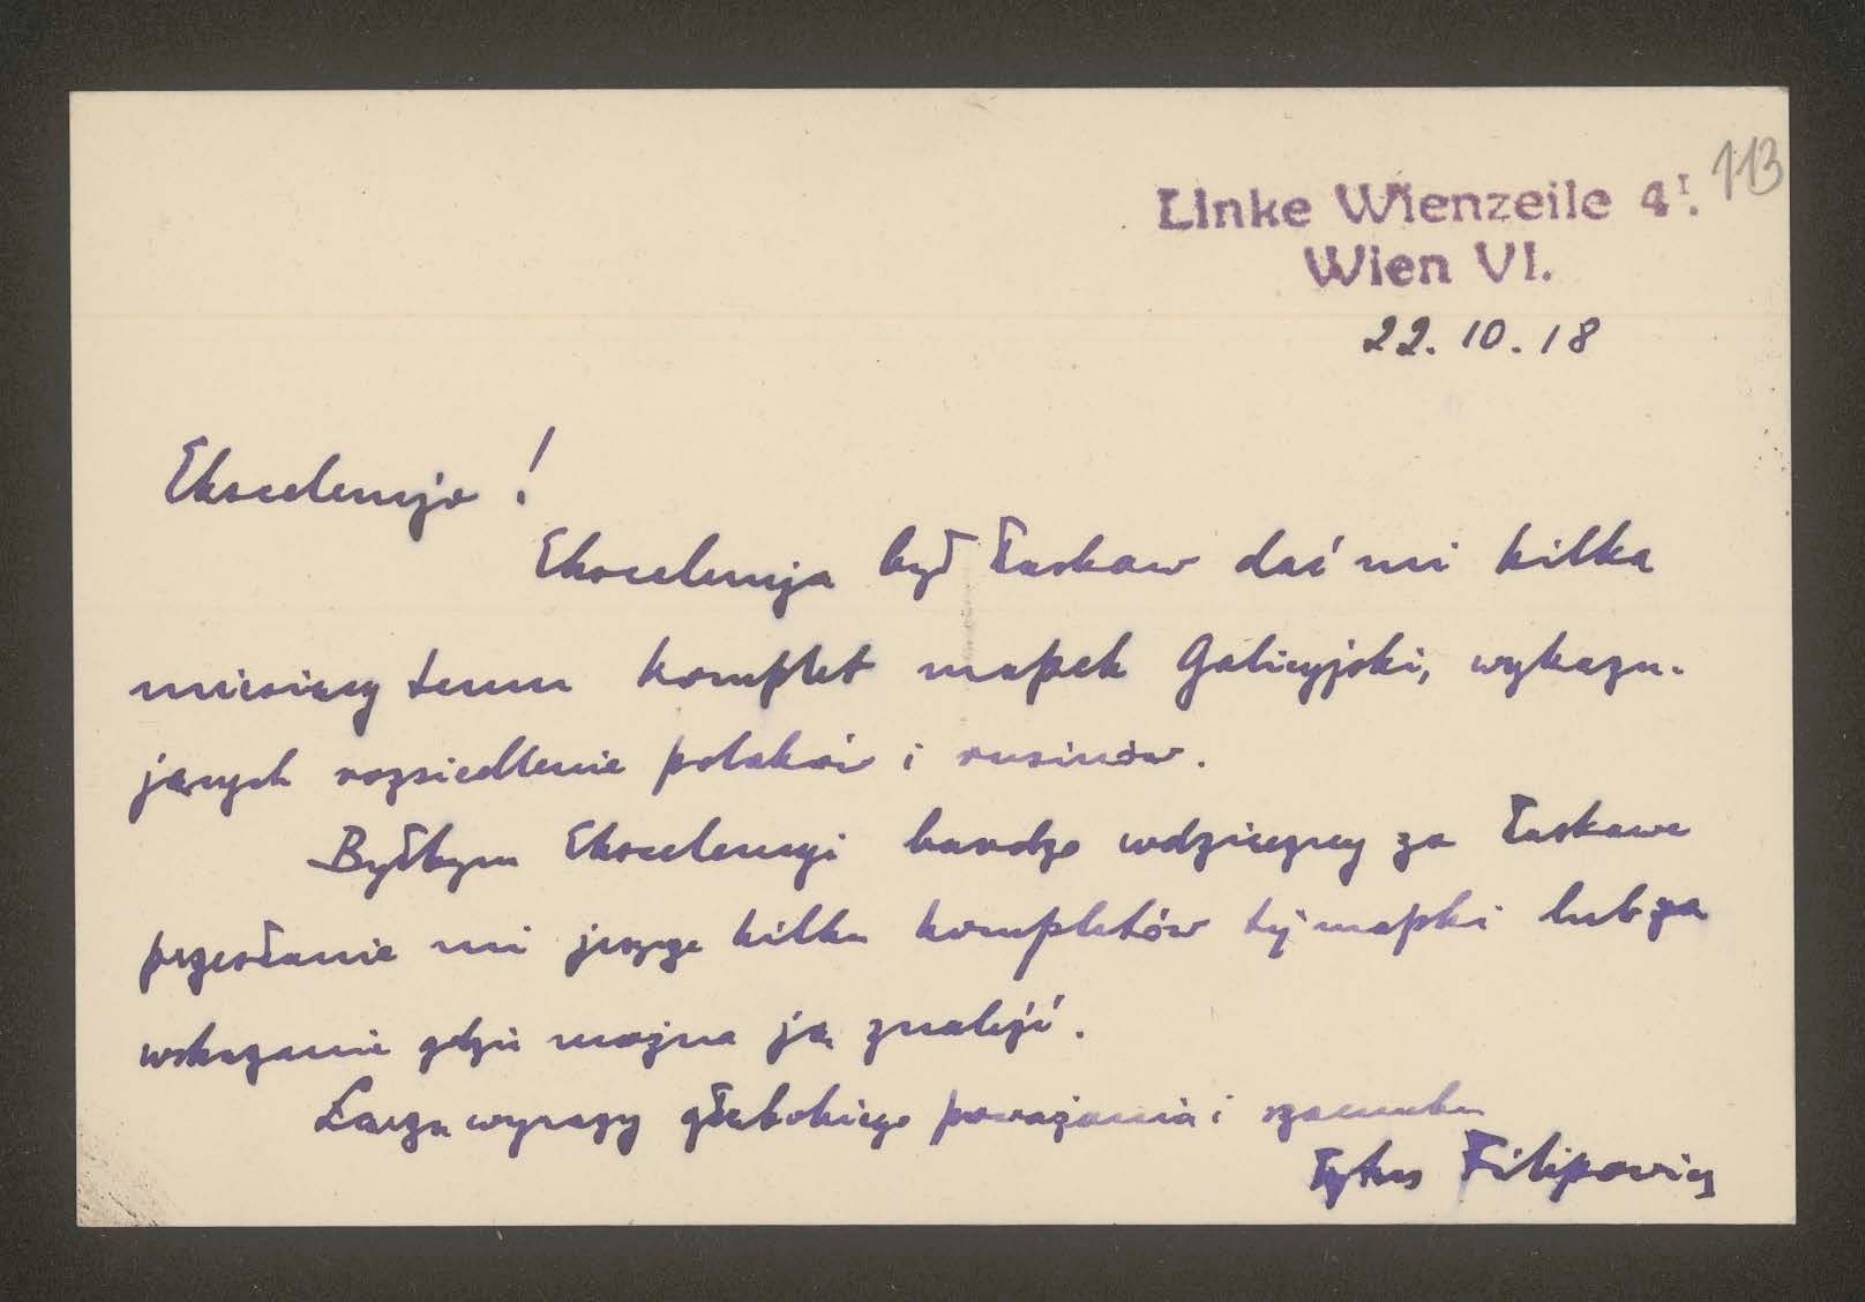 113
Linke Wienzeile 4I.
Wien VI.
22.10.18
Ekscelencjo!
Ekscelencja był łaskaw dać mi kilka
miesięcy temu komplet mapek Galicyjski, wykazu-
jących rozsiedlenie polaków i rusinów.
Byłbym Ekscelencji bardzo wdzięczny za łaskawe
przesłanie mi jeszcze kilku kompletów tej mapki lub za
wskazanie gdzie można ją znaleźć.
Łączę wyrazy głębokiego poważania i szacunku
Tytus Filipowicz